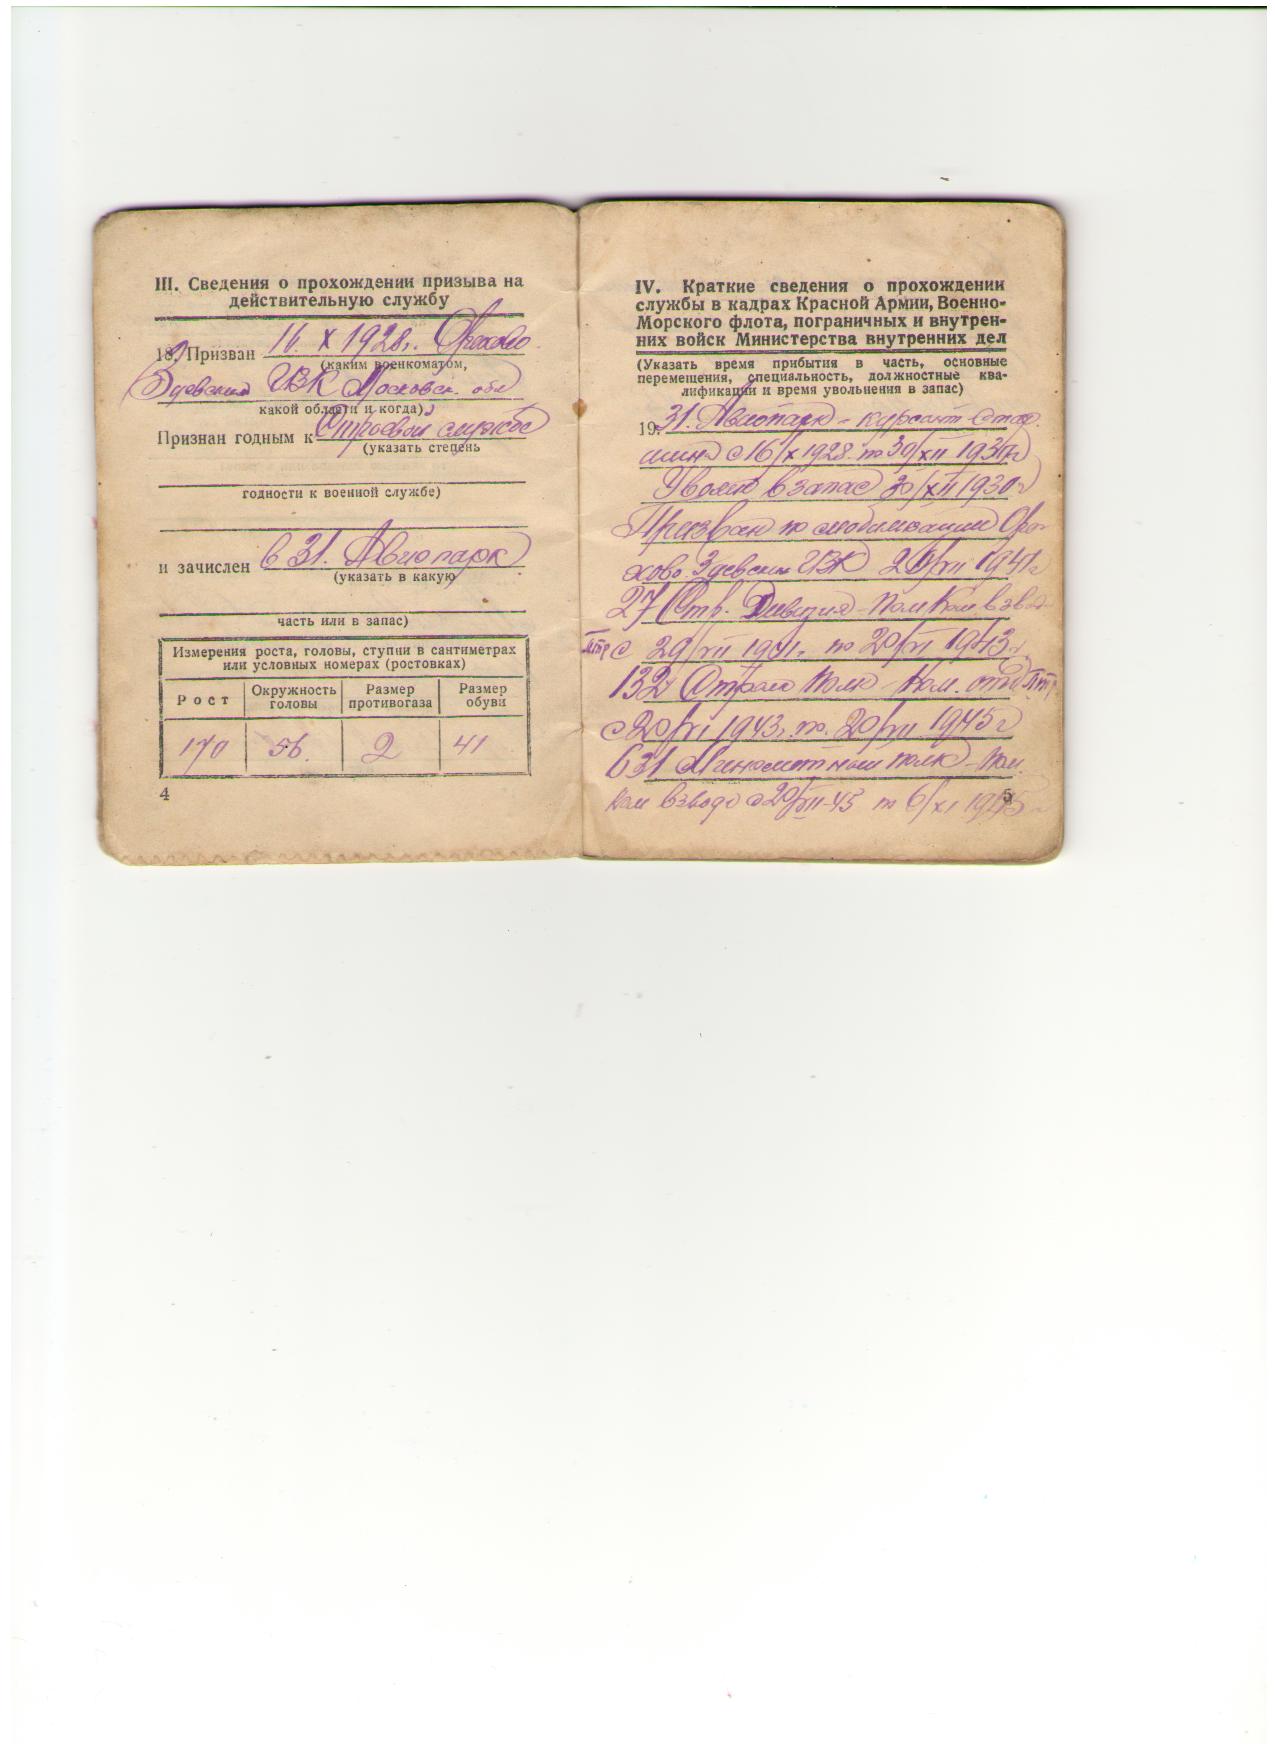 III. Сведения о прохождении призыва на
действительную службу
18. Призван 16. X 1928г. Орехово
(каким военкоматом,
Зуевским ГВК Московск. обл
какой области и когда)
Признан годным к Строевой службе
(указать степень
годности к военной службе)
и зачислен в 31. Авиопарк
(указать в какую
часть или в запас)
Измерения роста, головы, ступни в сантиметрах
или условных номерах (ростовках)
Рост Окружность головы Размер противогаза Размер обуви
170 56. 2 41
4
IV. Краткие сведения о прохождении
службы в кадрах Красной Армии, Военно-
Морского флота, пограничных и внутрен-
них войск Министерства внутренних дел
(Указать время прибытия в часть, основные
перемещения, специальность, должностные ква-
лификации и время увольнения в запас)
19. 31. Авиопарк - курсант-Стар.
шина с 16/X 1928. по 30/XII 1930г
Уволен в запас 30/XII 1930г
Призван по мобилизации Оре-
хово. Зуевским ГВК 1941г
27 Стр. Дивизия - Пом Ком взвод
птр с 29/VII 1941г. по 20/VI 1943г.
132 Полк - Ком. отд. Птр
с 20/VI 1943г. по 20/VII 1945г
631 Минометный полк - Пом.
Ком взвода с 20/VII-45 по 6/XI 1945г
5